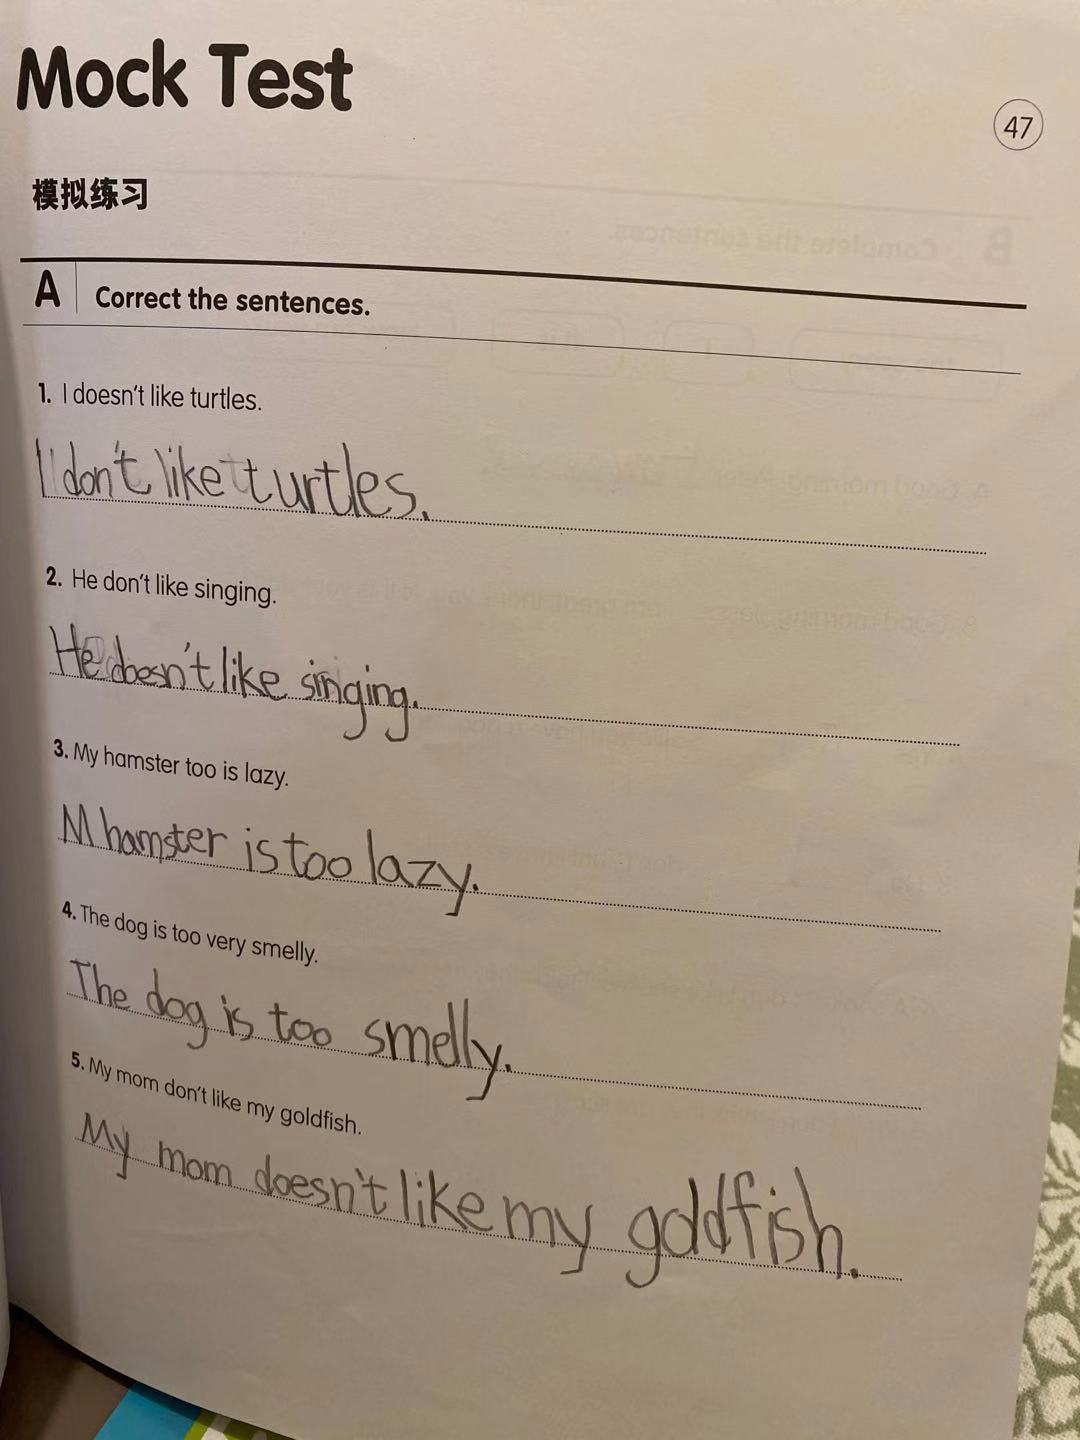 Mock Test
47
模拟练习
A Correct the sentences.
1. I doesn't like turtles.
I don't like turtles.
2. He don't like singing.
He doesn't like singing.
3. My hamster too is lazy.
M hamster is too lazy.
4. The dog is too very smelly.
The dog is too smelly.
5. My mom don't like my goldfish.
My mom doesn't like my goldfish.